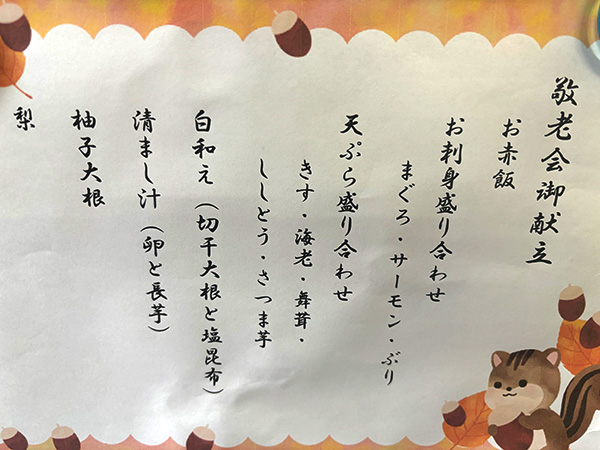 敬老会御献立
お赤飯
お刺身盛り合わせ
まぐろ・サーモン・ぶり
天ぷら盛り合わせ
きす・海老・舞茸・
ししとう・さつま芋
白和え（切干大根と塩昆布）
清まし汁（卵と長芋）
柚子大根
梨